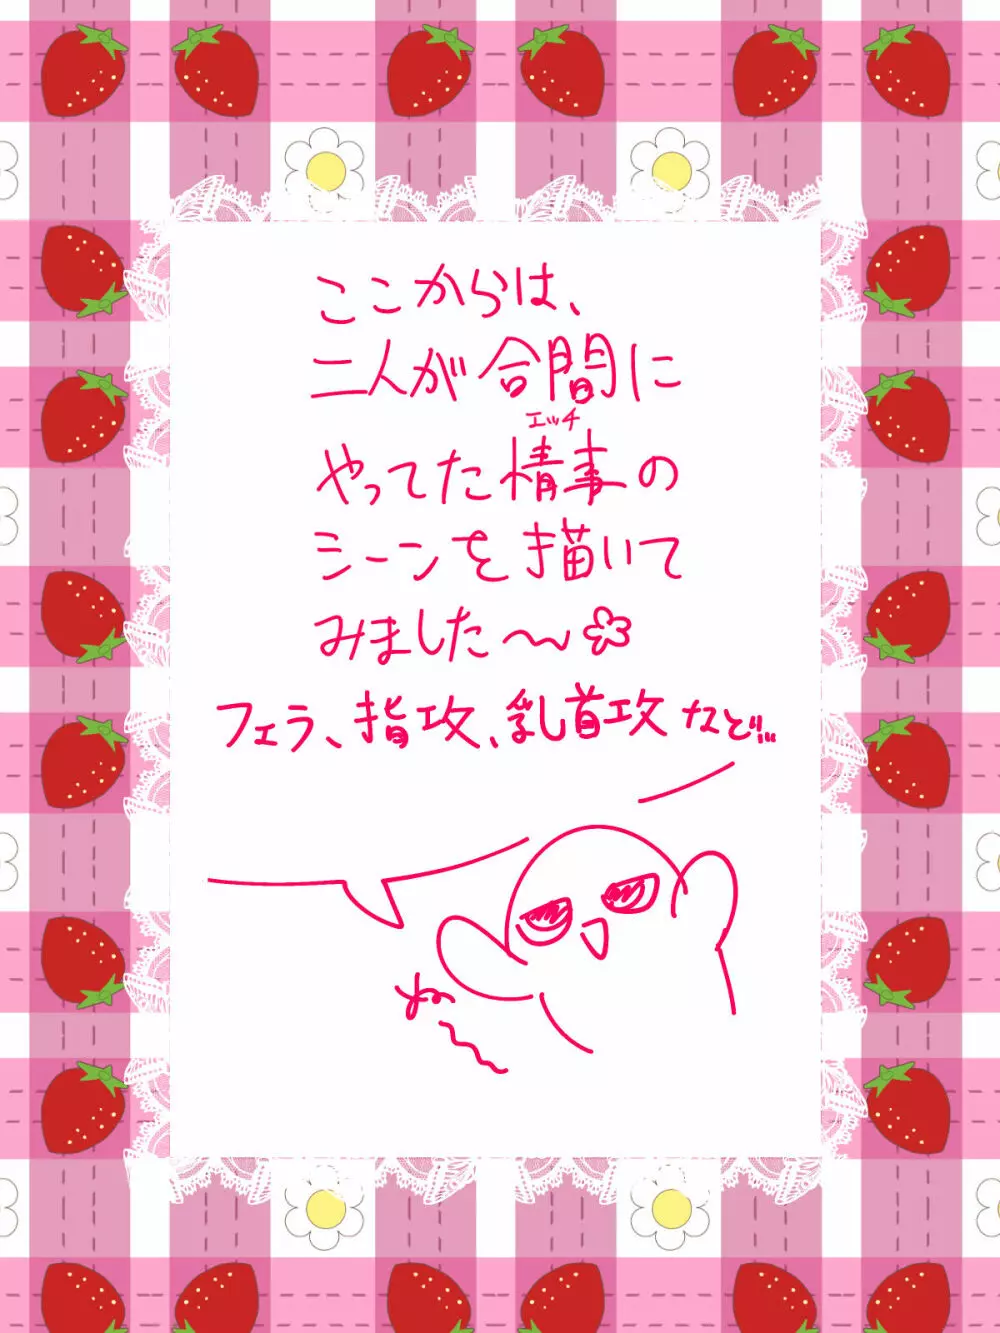 ここからは、
二人が合間に
エッチ
やってた情事の
シーンを描いて
みました〜
フェラ、指攻、乳首攻など!!…